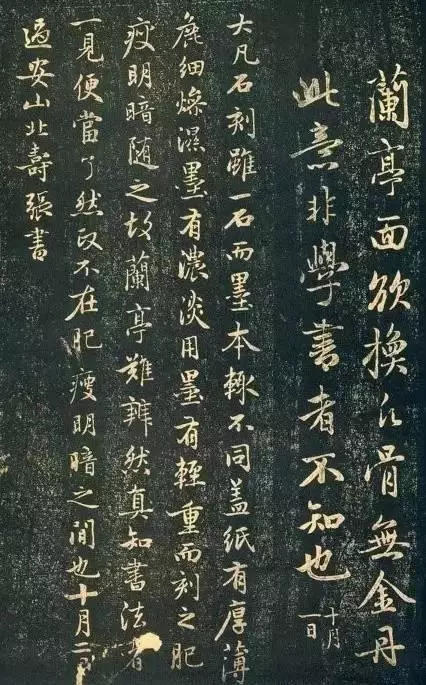 蘭亭面欲換凡骨無金丹
此意非學書者不知也
十月
一日
大凡石刻雖一石而墨本輒不同蓋紙有厚薄
麄細燥濕墨有濃淡用墨有輕重而刻之肥
瘦明暗随之故蘭亭難辨然真知書法者
一見便當了然政不在肥瘦明暗之間也十月二日
過安山北壽張書